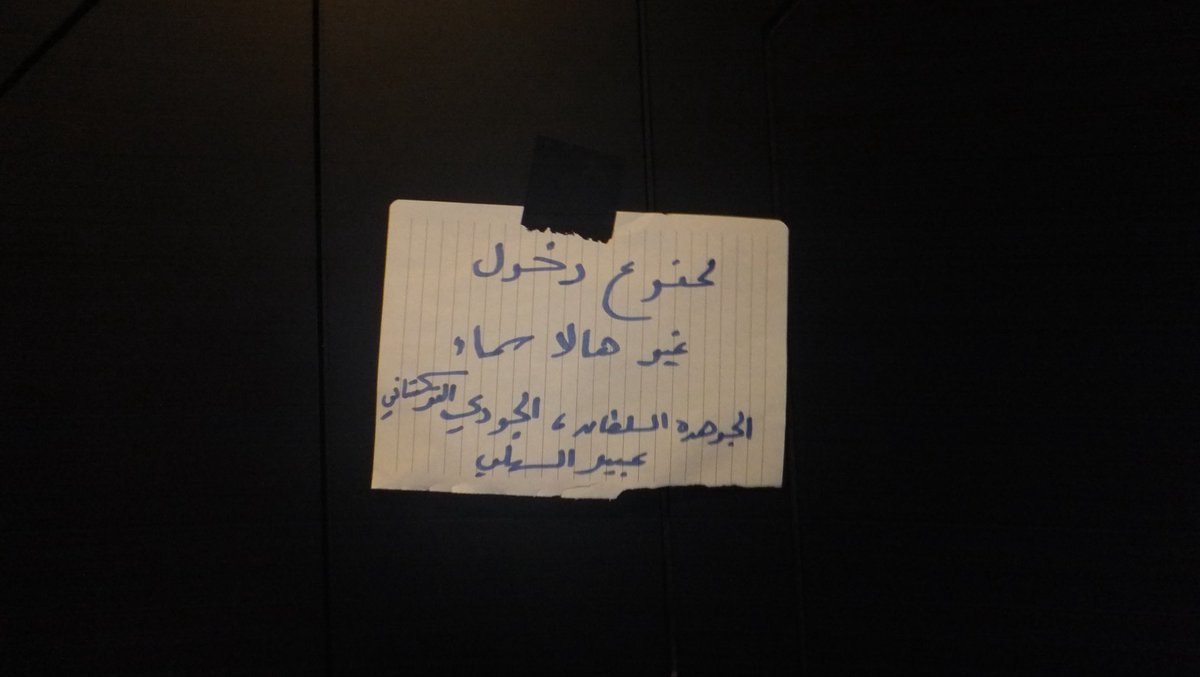 ممنوع دخول
غير هالا سماء
الجوهره السلطان، الجودي التركستاني
عبير السهلي